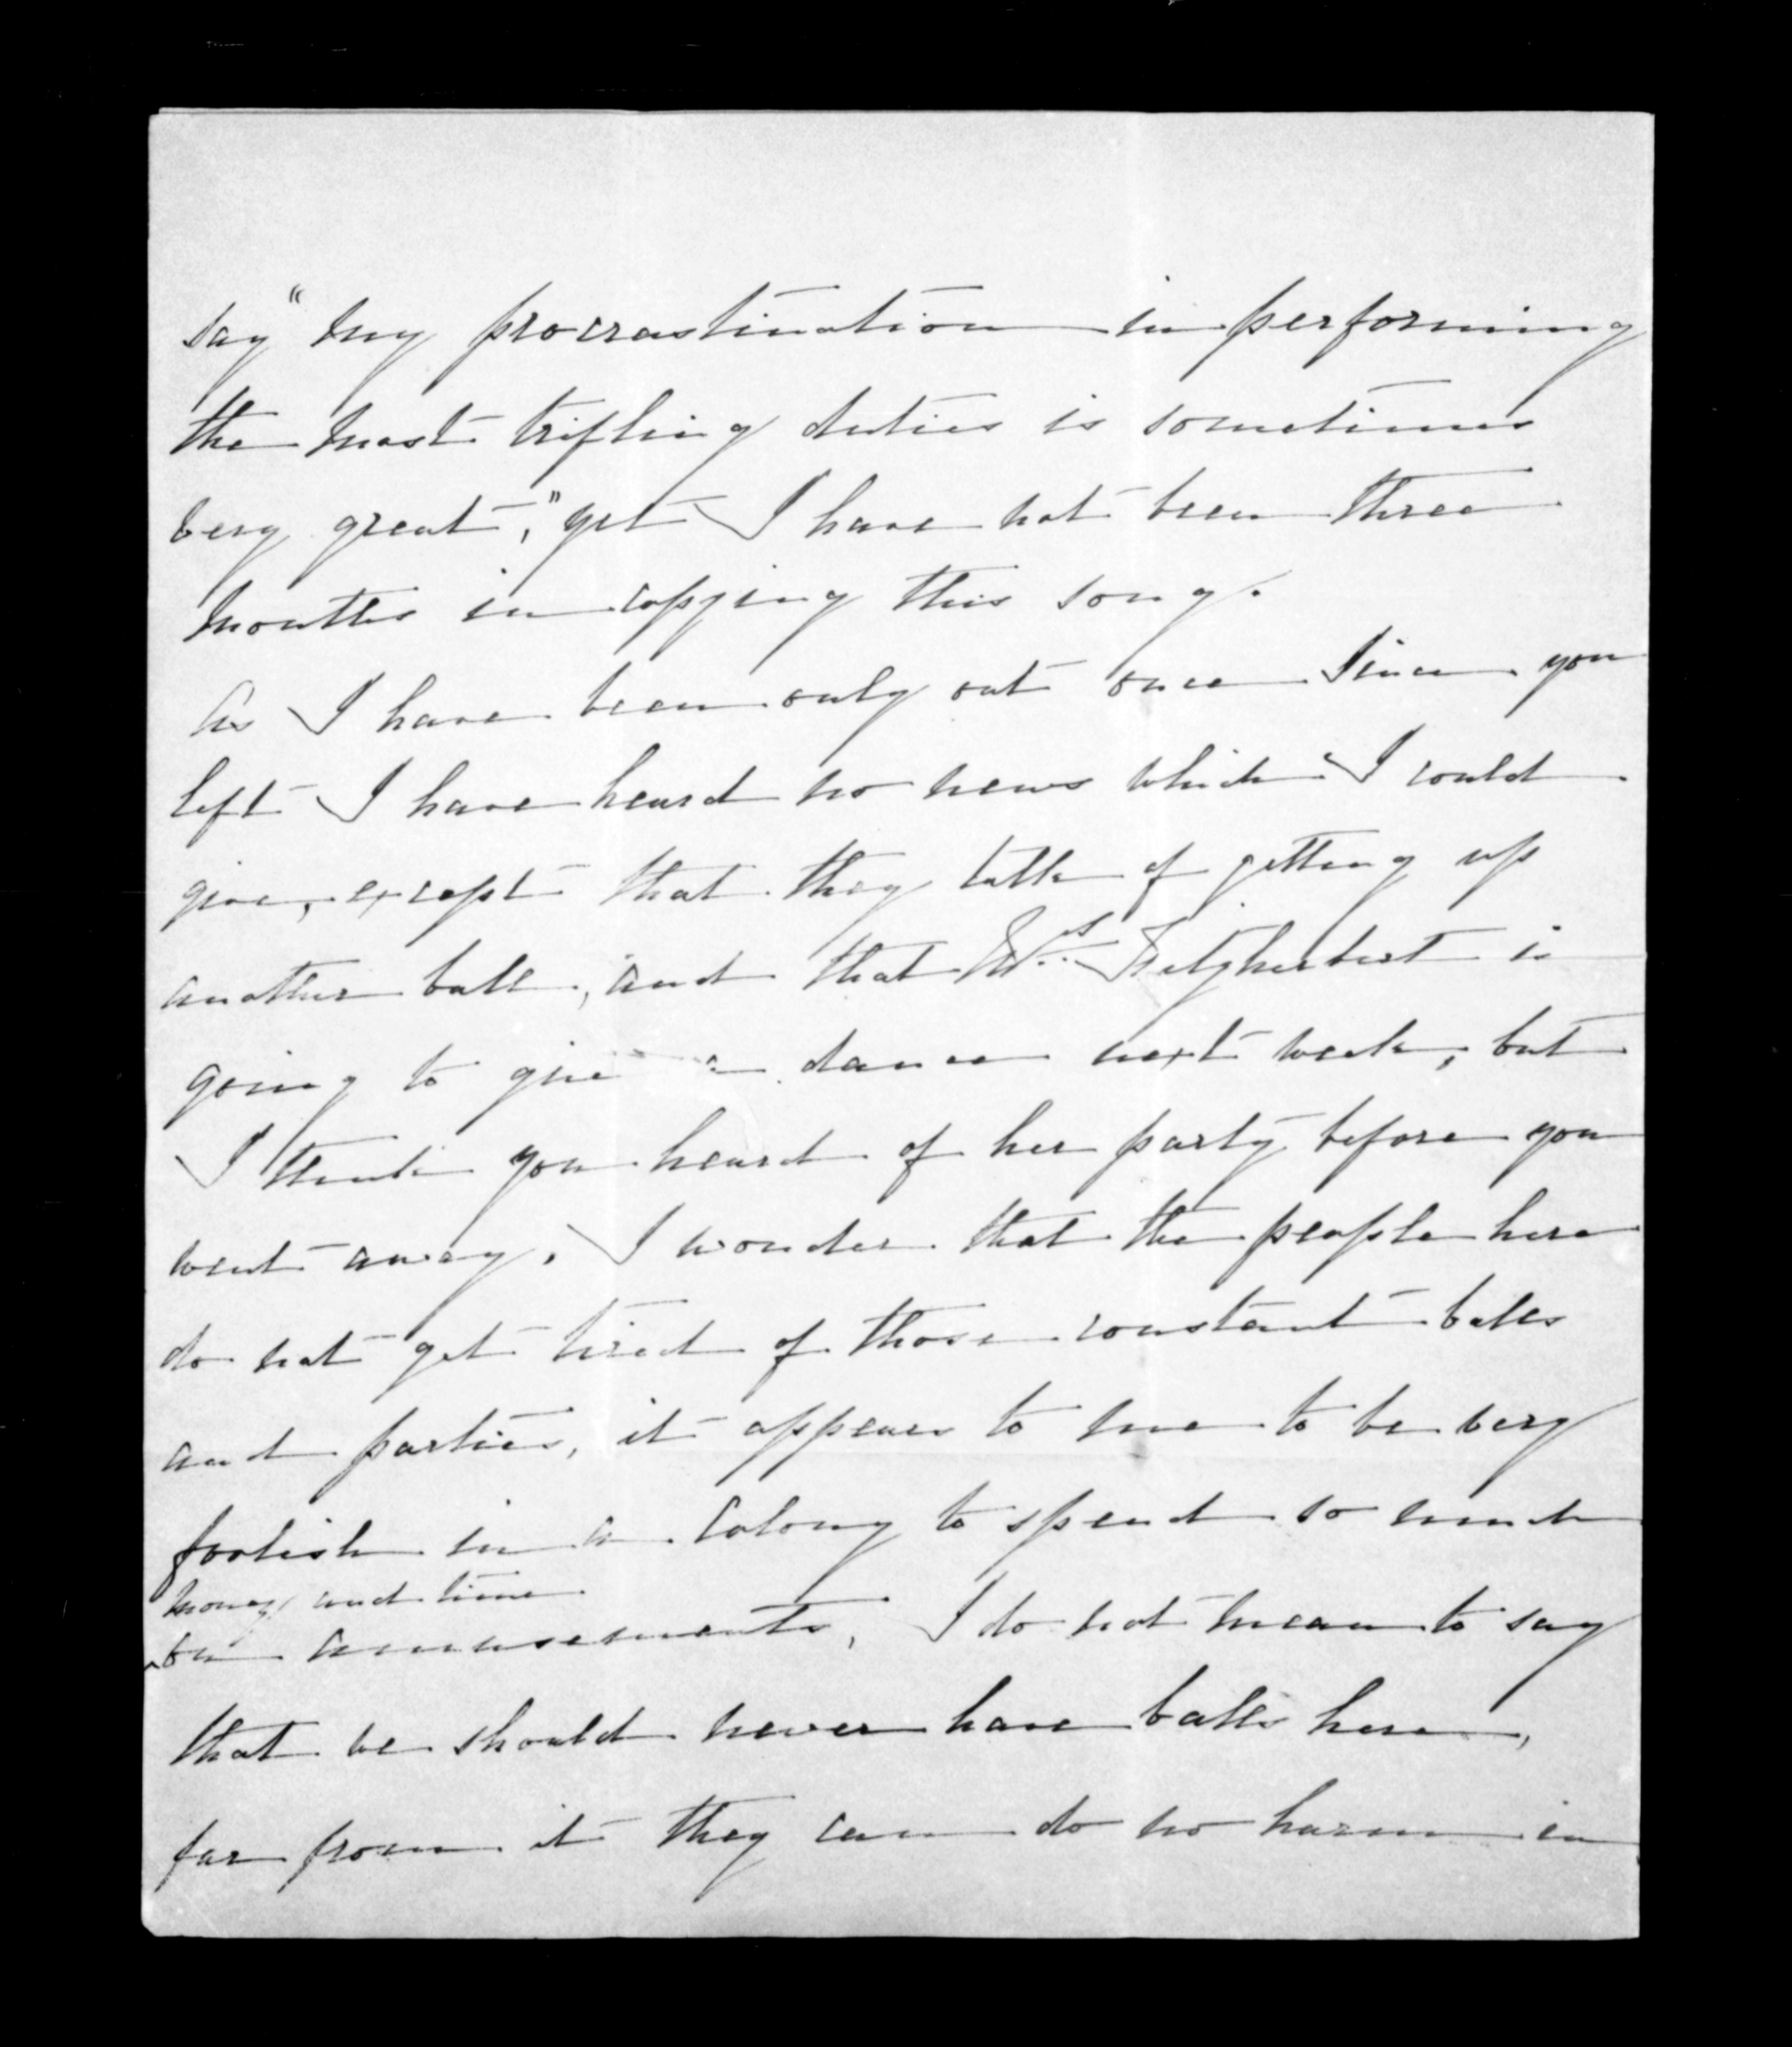 say "my procrastination in performing
the most trifling duties is sometimes
very great," yet I have not been three
months in copying this song.
As I have been only out once since you
left I have heard no news which I could
give, except that they talk of getting up
another ball, and that Mrs Fitzherbert is
going to give a dance next week, but
I think you heard of her party before you
went away. I wonder that the people here
do not get tired of those constant balls
and parties, it appears to me to be very
foolish in a Colony to spend so much
money and time
^on amusements, I do not mean to say
that we should never have balls here,
far from it they can do no harm in